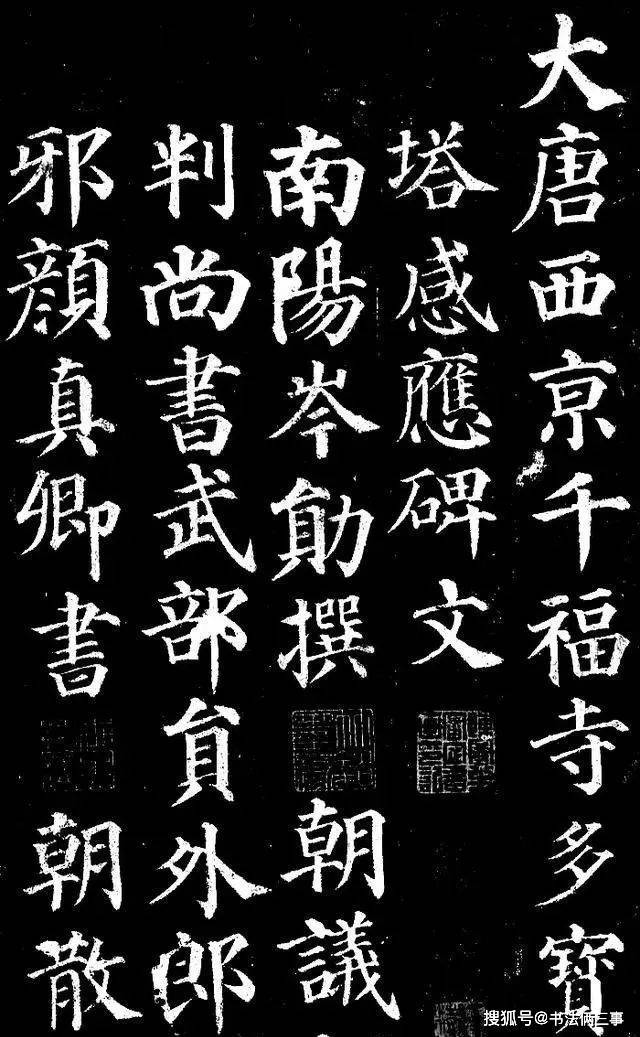 大唐西京千福寺多寶
塔感應碑文
南陽岑勛撰 朝議
判尚書武部員外郎
邪顏真卿書 朝散
搜狐号@书法俩三事